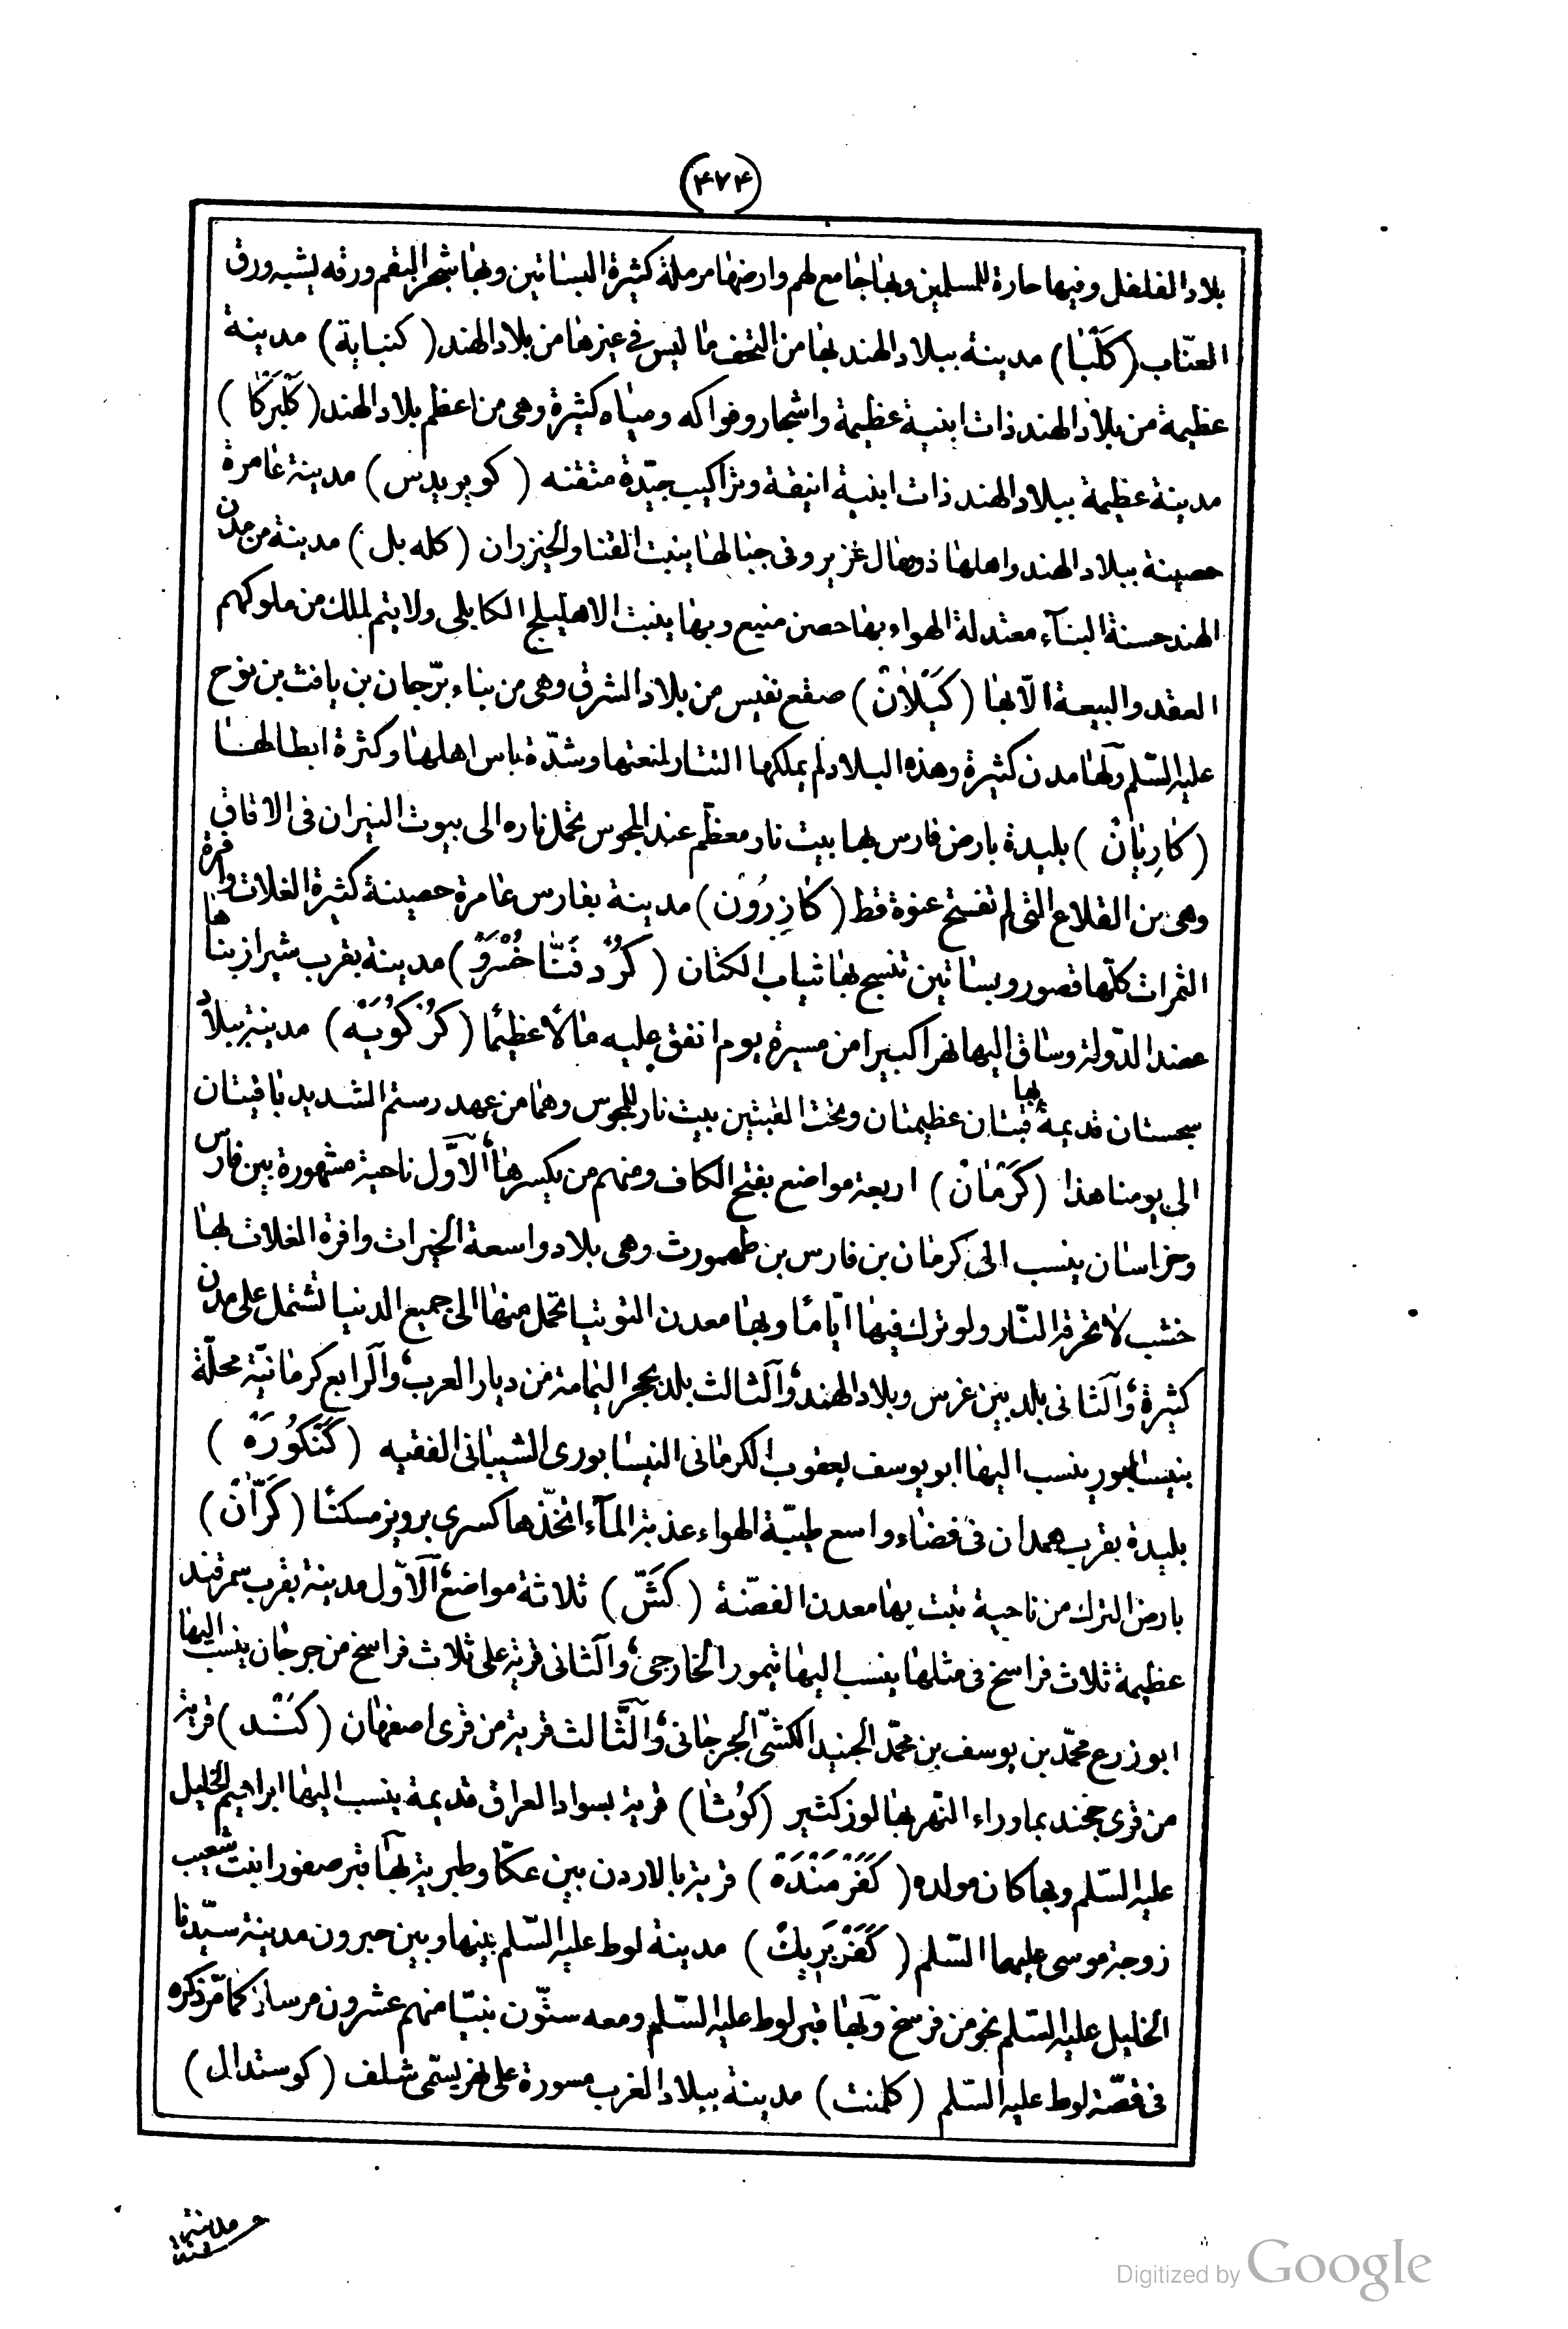 (٤٧٤)
بلاد الفلفل وفيها حارة للمسلمين وبها جامع لهم وارضها مرملة كثيرة البساتين وبها شجر البقم ورقه يشبه ورق
العنّاب (كَلَنْبَا) مدينة ببلاد الهند بها من التحف ما ليس فى غيرها من بلاد الهند (كنباية) مدينة
عظيمة من بلاد الهند ذات ابنية عظيمة واشجار وفواكه ومياه كثيرة وهى من اعظم بلاد الهند (كَلْبَرْكَا)
مدينة عظيمة ببلاد الهند ذات ابنية انيقة وتراكيب جيّدة متقنه (كويريدس) مدينة عامرة
حصينة ببلاد الهند واهلها ذو مال غزير وفى جبالها ينبت القنا والخيزران (كله بل) مدينة من مدن
الهند حسنة البنآء معتدلة الهواء بها حصن منيع وبها ينبت الاهليلج الكابلى ولا يتم لملك من ملوكهم
العقد والبيعة الّا بها (كَيْلَانْ) صقع نفيس من بلاد الشرق وهى من بناء برّجان بن يافث بن نوح
عليه السّلم ولها مدن كثيرة وهذه البلاد لم يملكها التتار لمنعتها وشدّة باس اهلها وكثرة ابطالها
(كَارِيَانْ) بليدة بارض فارس بها بيت نار معظّم عند المجوس تحمل ناره الى بيوت النيران فى الافاق
وهى من القلاع التى لم تفتح عنوة قط (كَازِرُونْ) مدينة بفارس عامرة حصينة كثيرة الغلات وافرة
الثمرات كلّها قصور وبساتين تنسج بها ثياب الكتان (كَرْد فَنَّا خُسْرَوْ) مدينة بقرب شيراز بناها
عضد الدّولة وساق اليها نهرا كبيرا من مسيرة يوم انفق عليه مالًا عظيمًا (كَرْكُويَهْ) مدينة ببلاد
سجستان قديمة بها قبتان عظيمتان وتحت القبتين بيت نار للمجوس وهما من عهد رستم الشديد باقيتان
الى يومنا هذا (كَرْمَانْ) اربعة مواضع بفتح الكاف ومنهم من يكسرها الآوّل ناحية مشهورة بين فارس
وخراسان ينسب الى كرمان بن فارس بن طهمورث وهى بلاد واسعة الخيرات وافرة الغلات بها
خشب لا تحرقه النّار ولو ترك فيها ايّامًا وبها معدن التوتيا تحمل منها الى جميع الدنيا تشتمل على مدن
كثيرة وآلثانى بلد بين غرس وبلاد الهند وآلثالث بلد بحجر اليمامة من ديار العرب وآلرابع كرمانيّة محلّة
بنيسابور ينسب اليها ابو يوسف يعقوب الكرمانى النيسابورى الشيبانى الفقيه (كَنْكُوَرَهْ)
بليدة بقرب همدان فى فضاء واسع طيبّة الهواء عذبة المآء اتخّذها كسرى برويز مسكنًا (كَرّانْ)
بارض الترك من ناحية تبت بها معدن الفضّة (كَشّ) ثلاثة مواضع الآوّل مدينة بقرب سمرقند
عظيمة ثلاث فراسخ فى مثلها ينسب اليها تيمور الخارجى وآلثانى قرية على ثلاث فراسخ من جرجان ينسب اليها
ابو زرع محمّد بن يوسف بن محمّد الجنيد الكشّى الجرجانى وآلثّالث قرية من قرى اصفهان (كَنْد) قرية
من قرى خجند بماوراء النّهر بها لوز كثير (كُوثَا) قرية بسواد العراق قديمة ينسب اليها ابراهيم الخليل
عليه السّلم وبها كان مولده (كَفَرْ مَنْدَهْ) قرية بالاردن بين عكّا وطبرية بها قبر صفورا بنت شعيب
زوجة موسى عليهما السّلم (كَفَرْ بَرِيكْ) مدينة لوط عليه السّلم بينها وبين حبرون مدينة سيّدنا
الخليل عليه السّلم نحو من فرسخ وبها قبر لوط عليه السّلم ومعه ستّون نبيّا منهم عشرون مرسلا كما مرّ ذكره
فى قصّة لوط عليه السّلم (كلمنت) مدينة ببلاد الغرب مسورة على نهر يسمّى شلف (كوستدال)
مدينة
Digitized by Google